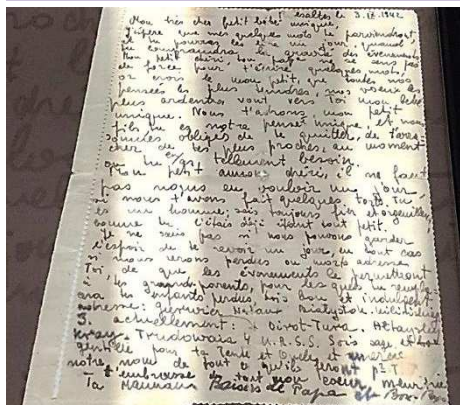 Mon très cher petit bébé unique
Esaltes le 3.IX.1942
J'espère que mes quelques mots te parviendront
et tu pourras les lire un jour, quand
tu comprendras la gravité des événements
Mon petit chéri ton papa ne se sens pas
de force pour t'écrire quelques mots,
crois le mon petit, que toutes nos
pensées les plus tendres nos voeux les
plus ardents vont vers toi mon bébé
unique. Nous t'adorons mon petit
fils tu es notre pensée unique, et nous
sommes obligés de te quitter, de t'arra-
cher de tes plus proches, au moment
ou tu as tellement besoin.
Mon petit amour chéri, il ne faut
pas nous en vouloir un jour
si nous t'avons fait quelques torts. Tu
es un homme, sois toujours fier et orgueilleux
comme tu l'étais déjà étant tout petit.
Je ne sais pas si nous pouvons garder
l'espoir de te revoir un jour, en tout cas
si nous serons perdus ou morts adresse
Toi, dè que les événements le permettront
à tes grand parents, pour les quels tu rempla-
cera les enfants perdus, sois bon et indulgent
adresse: Natan Białystok
actuellement: Oirot-Tura. Altayski
Kray. Trudowaia 4 U.R.S.S. Sois sage et
gentille pour ta Tante et Oncle et
notre nom de tout ce qu'ils feront p. T.
T'embrasse de tout mon coeur meurtrie
Ta Maman Baisers de Papa